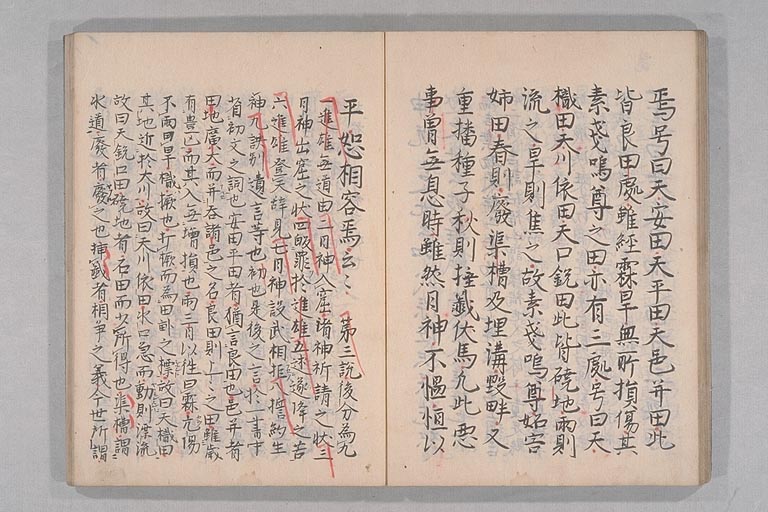 焉号曰天安田天平田天邑并田此
皆良田處雖経霖旱無所損傷其
素戔嗚尊之田亦有三處号曰天
樴田天川依田天口鋭田此皆磽地雨則
流之旱則焦之故素戔嗚尊妬害
姉田春則廢渠槽及埋溝毀畔又
重播種子秋則捶籖伏馬凡此悪
事曽無息時雖然日神不慍恒以
平恕相容焉云〻 第三説後分為九
一進雄無道由二日神入窟諸神祈請之状三
日神出窟之状四皈罪於進雄五述逐降之苦
六進雄登天辞見七日神設武相拒八誓約生
神九訣別遺言等也初也是後之言於一書中
首初文之詞也安田平田者猶言良田也邑并者
田地廣大而并吞諸邑之名良田則上〻之田雖歳
有豊凶而其入無増損也雨三日以往曰霖亢陽
不雨曰旱樴橛也打橛而為田町之標故曰天樴田
其地近於大川故曰天川依田水口急而動則漂流
故曰天鋭口田磽地者石田而少所得也渠槽謂
水道廢者廢之也捶籖者相争之義今世所謂